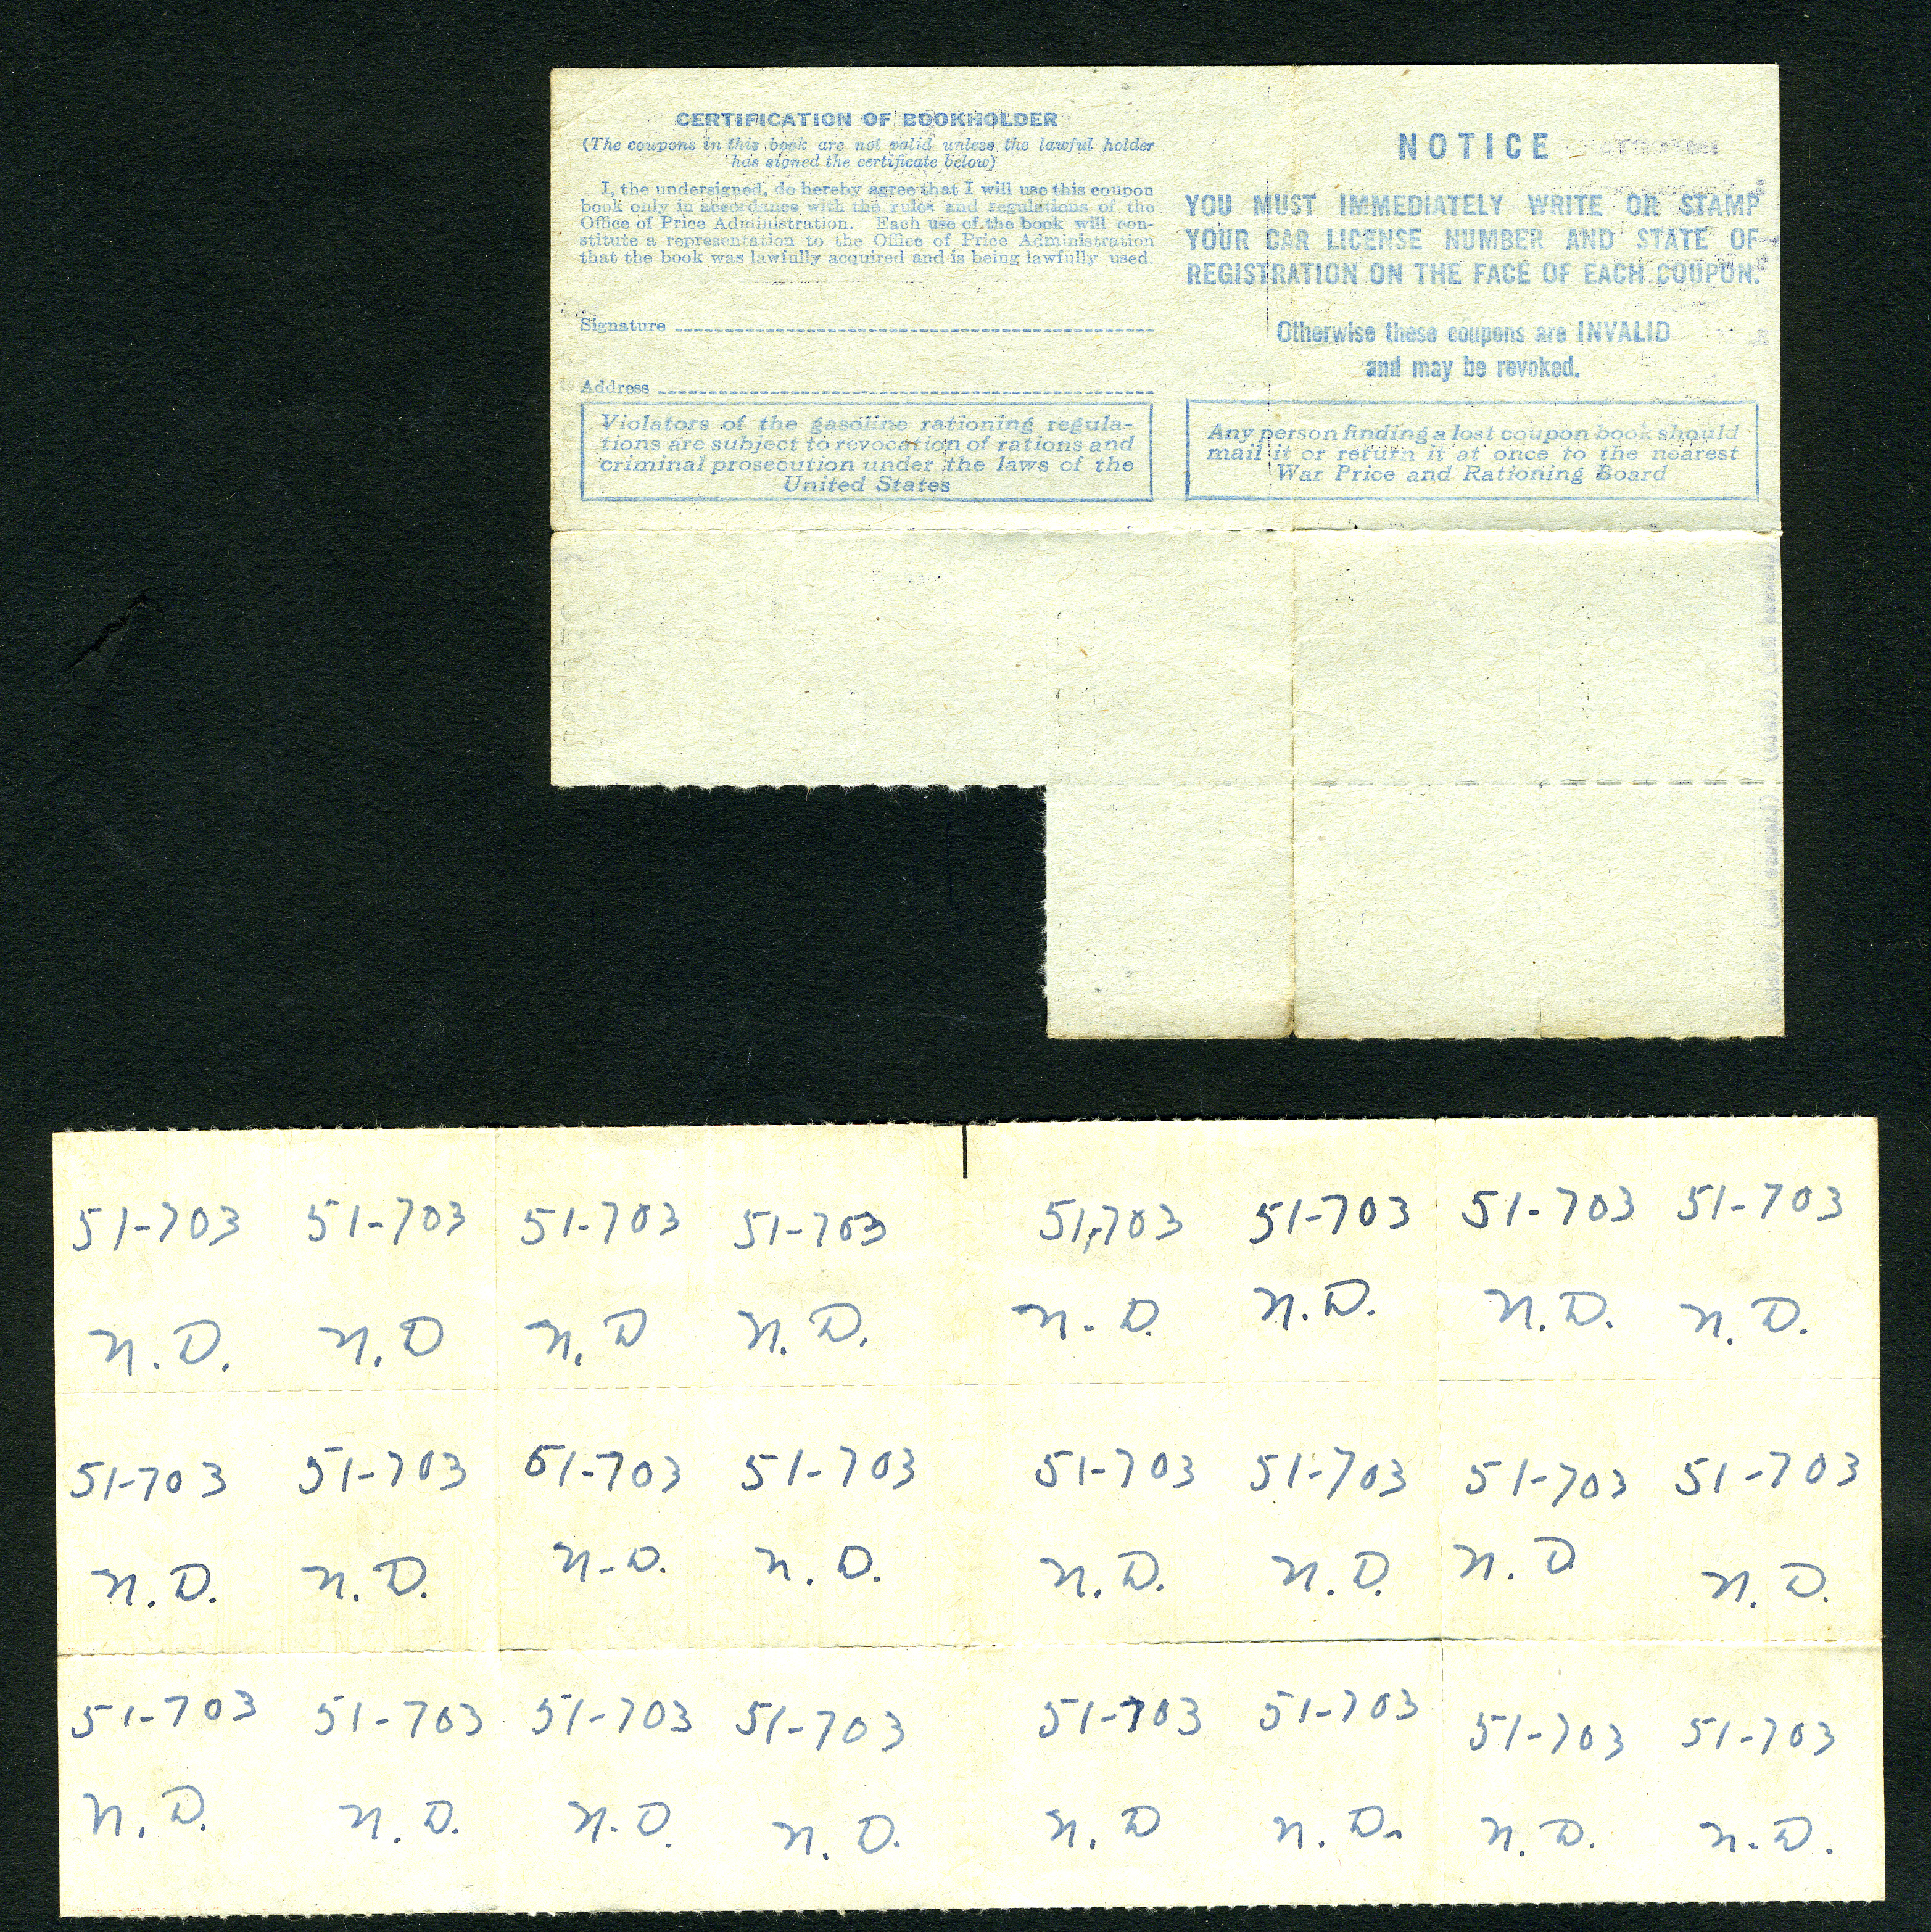 CERTIFICATION OF BOOKHOLDER
(The coupons in this book are not valid unless the lawful holder
has signed the certificate below)
I, the undersigned, do hereby agree that I will use this coupon
book only in accordance with the rules and regulations of the
Office of Price Administration. Each use of the book will con-
stitute a representation to the Office of Price Administration
that the book was lawfully acquired and is being lawfully used.
Signature
Address
Violators of the gasoline rationing regula-
tions are subject to revocation of rations and
criminal prosecution under the laws of the
United States
NOTICE
YOU MUST IMMEDIATELY WRITE OR STAMP
YOUR CAR LICENSE NUMBER AND STATE OF
REGISTRATION ON THE FACE OF EACH COUPON.
Otherwise these coupons are INVALID
and may be revoked.
Any person finding a lost coupon book should
mail it or return it at once to the nearest
War Price and Rationing Board
51-703 51-703 51-703 51-703 51-703 51-703 51-703 51-703
N.D. N.D N.D N.D. N.D. N.D. N.D. N.D.
51-703 51-703 51-703 51-703 51-703 51-703 51-703 51-703
N.D. N.D. N-D. N.D. N.D. N.D. N.D N.D.
51-703 51-703 51-703 51-703 51-703 51-703 51-703 51-703
N.D. N.D. N.D. N.D. N.D N.D. N.D. N.D.